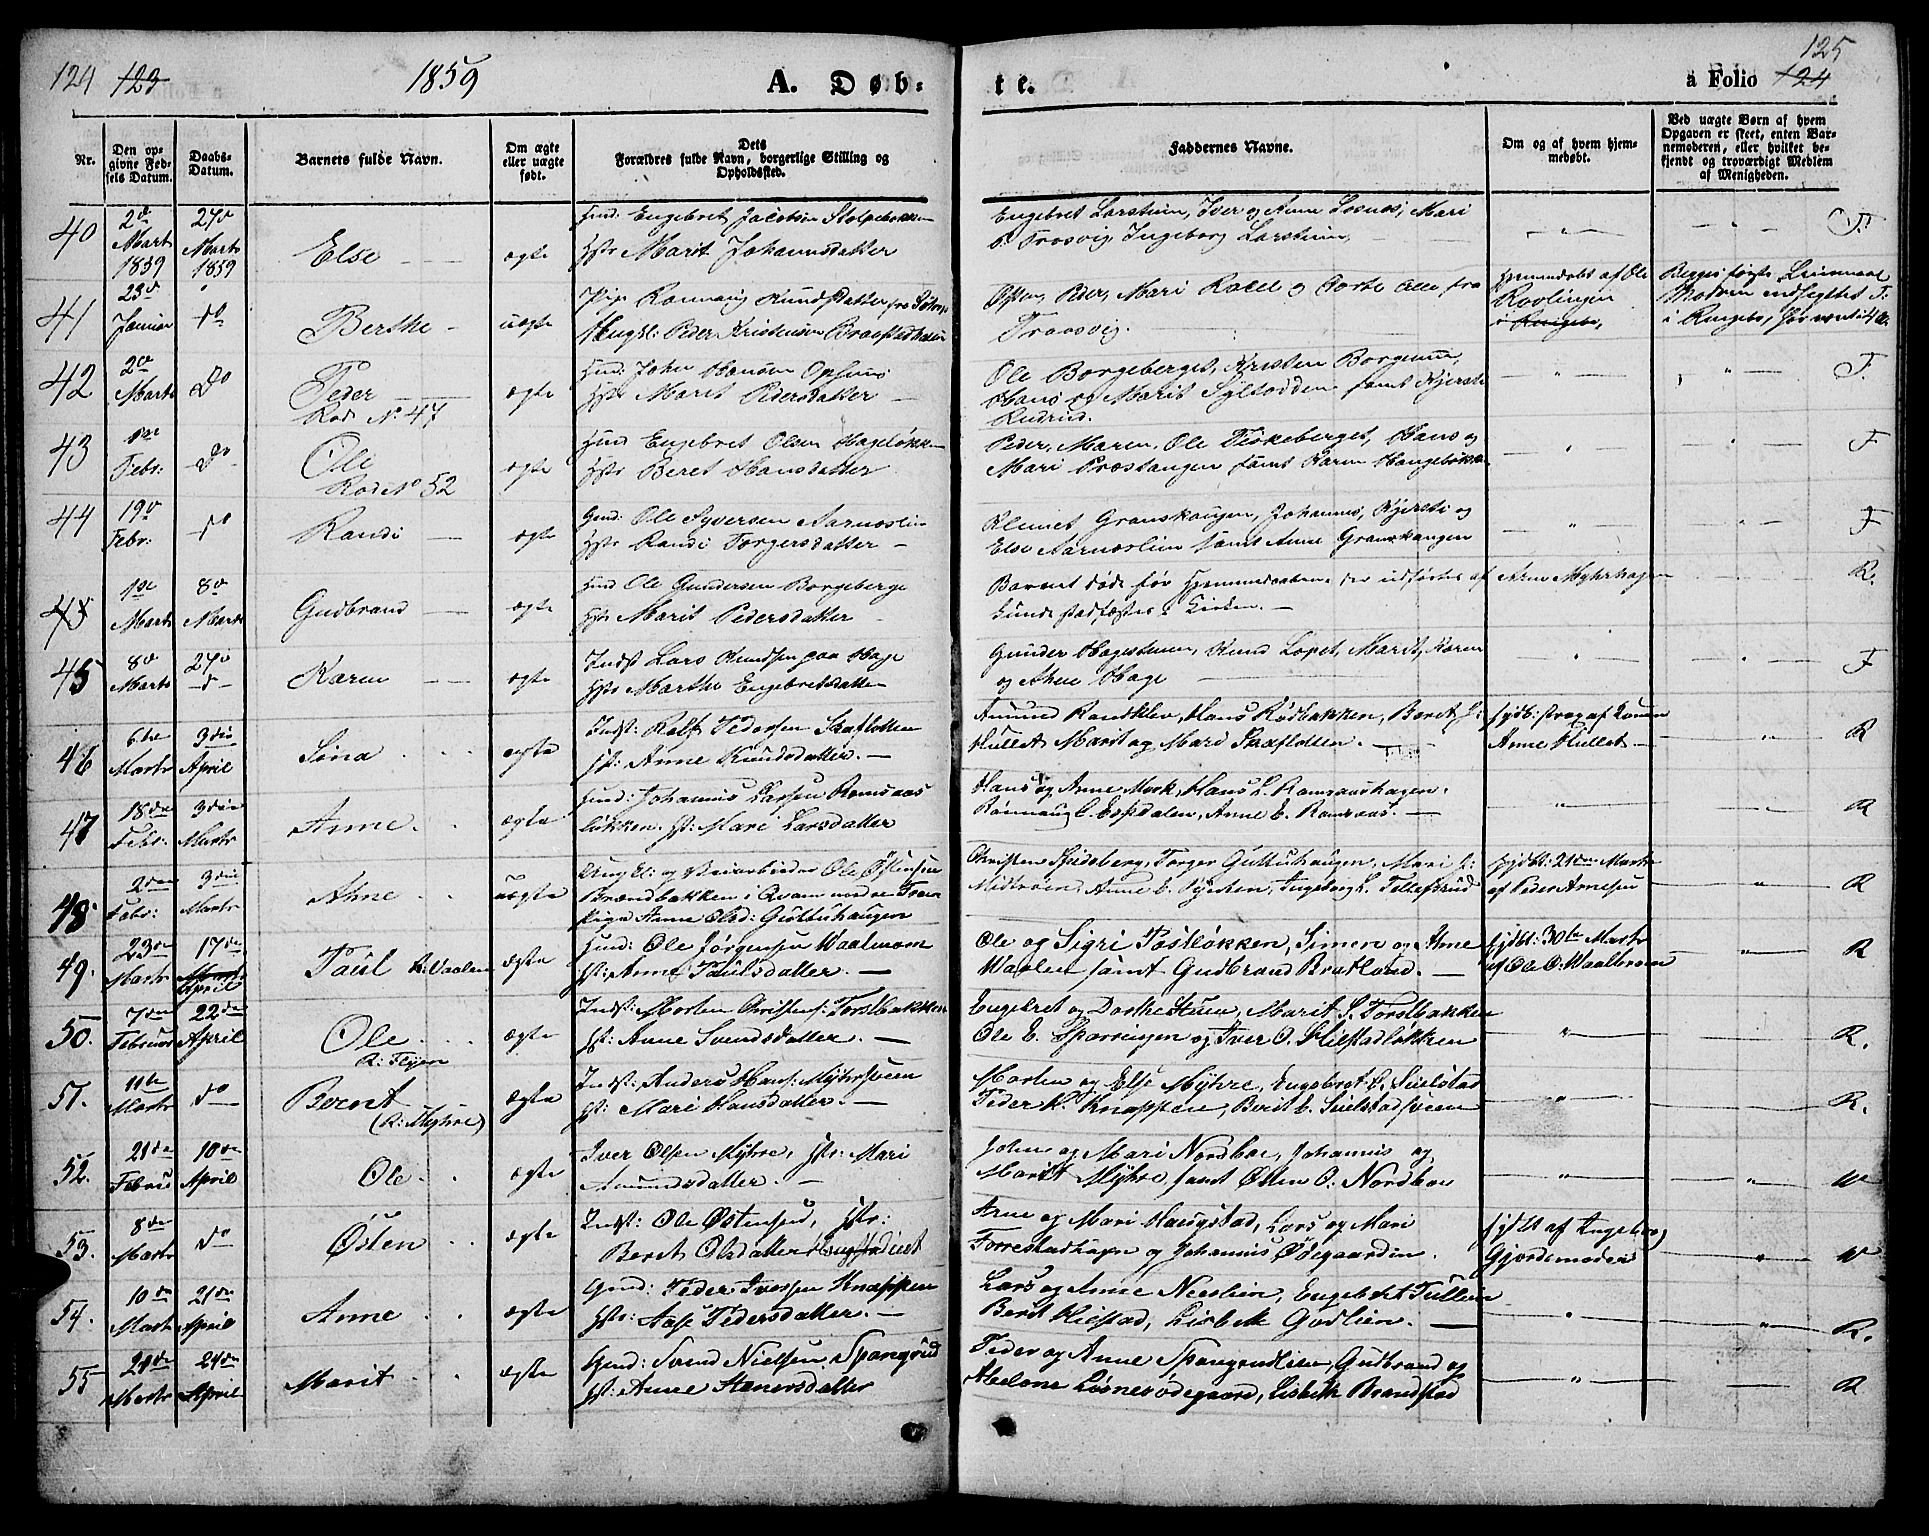 124 123 1859 A. Døb-
te. a Folio 124 125
Nr. Den opgivne Fødsels Datum. Daabs-Datum. Barnets fulde Navn. Om ægte eller uægte født. Dets Forældres fulde Navn, borgerlige Stilling og Opholdssted.
Faddernes Navne. Om og af hvem hjemmedøbt. Ved uægte Børn af hvem Opgaven er skeet, enten Barnemoderen, eller hvilket bekjendt og troværdigt Medlem af Menigheden.
40 2d Marts 1859 27d Marts 1859 Else ægte
Engebret Jacobsen
Hst: Marit Johannesdatter
Engebret Larstuen, Iver og Anne Losnes, Mari
Trosvig, Ingeborg Larstuen F.
41 23d Januar do Berthe uægte
Pige Rønnaug Knudsdatter
Ungkl: Peder Kristensen
Peder, Mari alle fra
Trosvig.
Hjemmedøbt af Ole
i Ringebu,
42 2d Marts Do Peder ægte
Rod No 47
Huusm: John Hansen Opsan
Hst: Marit Pedersdatter
Ole Borgeberget, Kristen Borgerun
Hans og Marit samt Kjersti
F.
43 Febr: do Ole ægte
Rode No 52
Huusm Engebret Olsen Hageløkken
Hst: Beret Hansdatter
Peder, Maren, Ole Fiskeberget, Hans og
Mari Præstangen samt Karen F
44 19d Febr: do Randi ægte
Gmd: Ole Syversen Aarnæslien
Hst: Randi Torgersdatter
Klemet Granskaugen, Johannes, Kjersti og
Else Aarnæslien samt Anne Granskaugen F
45 1ste Marts 8d Marts Gudbrand ægte
Ole Gundersen Borgeberget
Hst: Marit Pedersdatter
Barnet døde før Hjemmedaaben, der udførtes af Arne Myhrhagen
kunde stadfæstes i Kirken. R.
45 8d Marts 27d Karen ægte
Indst Lars Knudsen paa Hage
Hst: Marthe Engebretsdatter
Gunder Hagestuen, Knud Lopet, Marit, Karen
og Anne Hage F
46 6te Marts 3die April Sina ægte
Indst: Rolf Pedersen Skaflotten
Hst: Anne Knudsdatter.
Amund Randklev, Hans Rødbakken, Beret
Hullet Marit og Mari Skaflotten.
Anne Hullet R
47 18de Febr: 3die Marts Anne ægte
Huusm: Johannes Larsen Ramsaas
løkken. Hst: Mari Larsdatter
Hans og Anne Mork, Hans L. Ramsaashagen,
Rønnaug C. Espedalen, Anne E. Ramsaas. R
48 2den Febr: 3die Marts Anne uægte
Ungkl: og Ole Østensen
Brændbakken i Qvam med
Pige Anne Olsd: Guttuhaugen
Christen Spidsberg, Torger Guttuhaugen, Mari
Anne E. Ingeborg L. Tollefsrud
hjdbt: 21de Marts
af Peder Arnesen R
49. 23de Marts 17de Marts April Paul R: Vaalen ægte
Huusm: Ole Jørgensen Waalmoen
Hst: Anne Paulsdatter.
Ole og Sigri Tostløkken, Simen og Anne
Waalen samt Gudbrand Bratland.
hjdbt: 30te Marts
af Ole O: Waalbroen R
50. 7de Februar 22de April Ole ægte
R: Flyen
Indst: Morten Christens: Forstbakken
Hst: Anne Svendsdatter.
Engebret og Dorthe Stuen, Marit S. Forstbakken
Ole E. Sparringen og Iver O. Kielstadløkken R.
51. 11te Marts do Bernt ægte
(R: Myhre)
Indst: Anders Hans: Myhrsveen
Hst: Mari Hansdatter.
Morten og Else Myhre, Engebret P. Kielstad
Peder K. Knappen, Berit E. Kielstadsveen R.
52. 21de Februar 10de April Ole ægte
Iver Olsen Myhre, Hst: Mari
Amundsdatter.
John og Mari Nordboe, Johannes og
Marit Myhre samt Østen O: Nordboe W
53. 8de Marts do Østen ægte
Indst: Ole Østensen, Hst:
Beret Olsdatter
Arne og Mari Haugstad, Lars og Mari
Forrestad og Johannes Ødegaarden.
hjdbt af Ingeborg
Gjordemoder W
54. 10de Marts 21de April Anne ægte
Gmd: Peder Iversen Knappen
Hst: Aase Pedersdatter.
Lars og Anne Neeslien, Engebret Tullien
Berit Kielstad, Lisbeth Godlien. R.
55 24de Marts 24de April Marit ægte
Gmd: Svend Nielsen Spangrud
Hst: Anne Stenersdatter
Peder og Anne Spangrudlien, Gudbrand og
Helene Losnesødegaard, Lisbeth Brandstad R